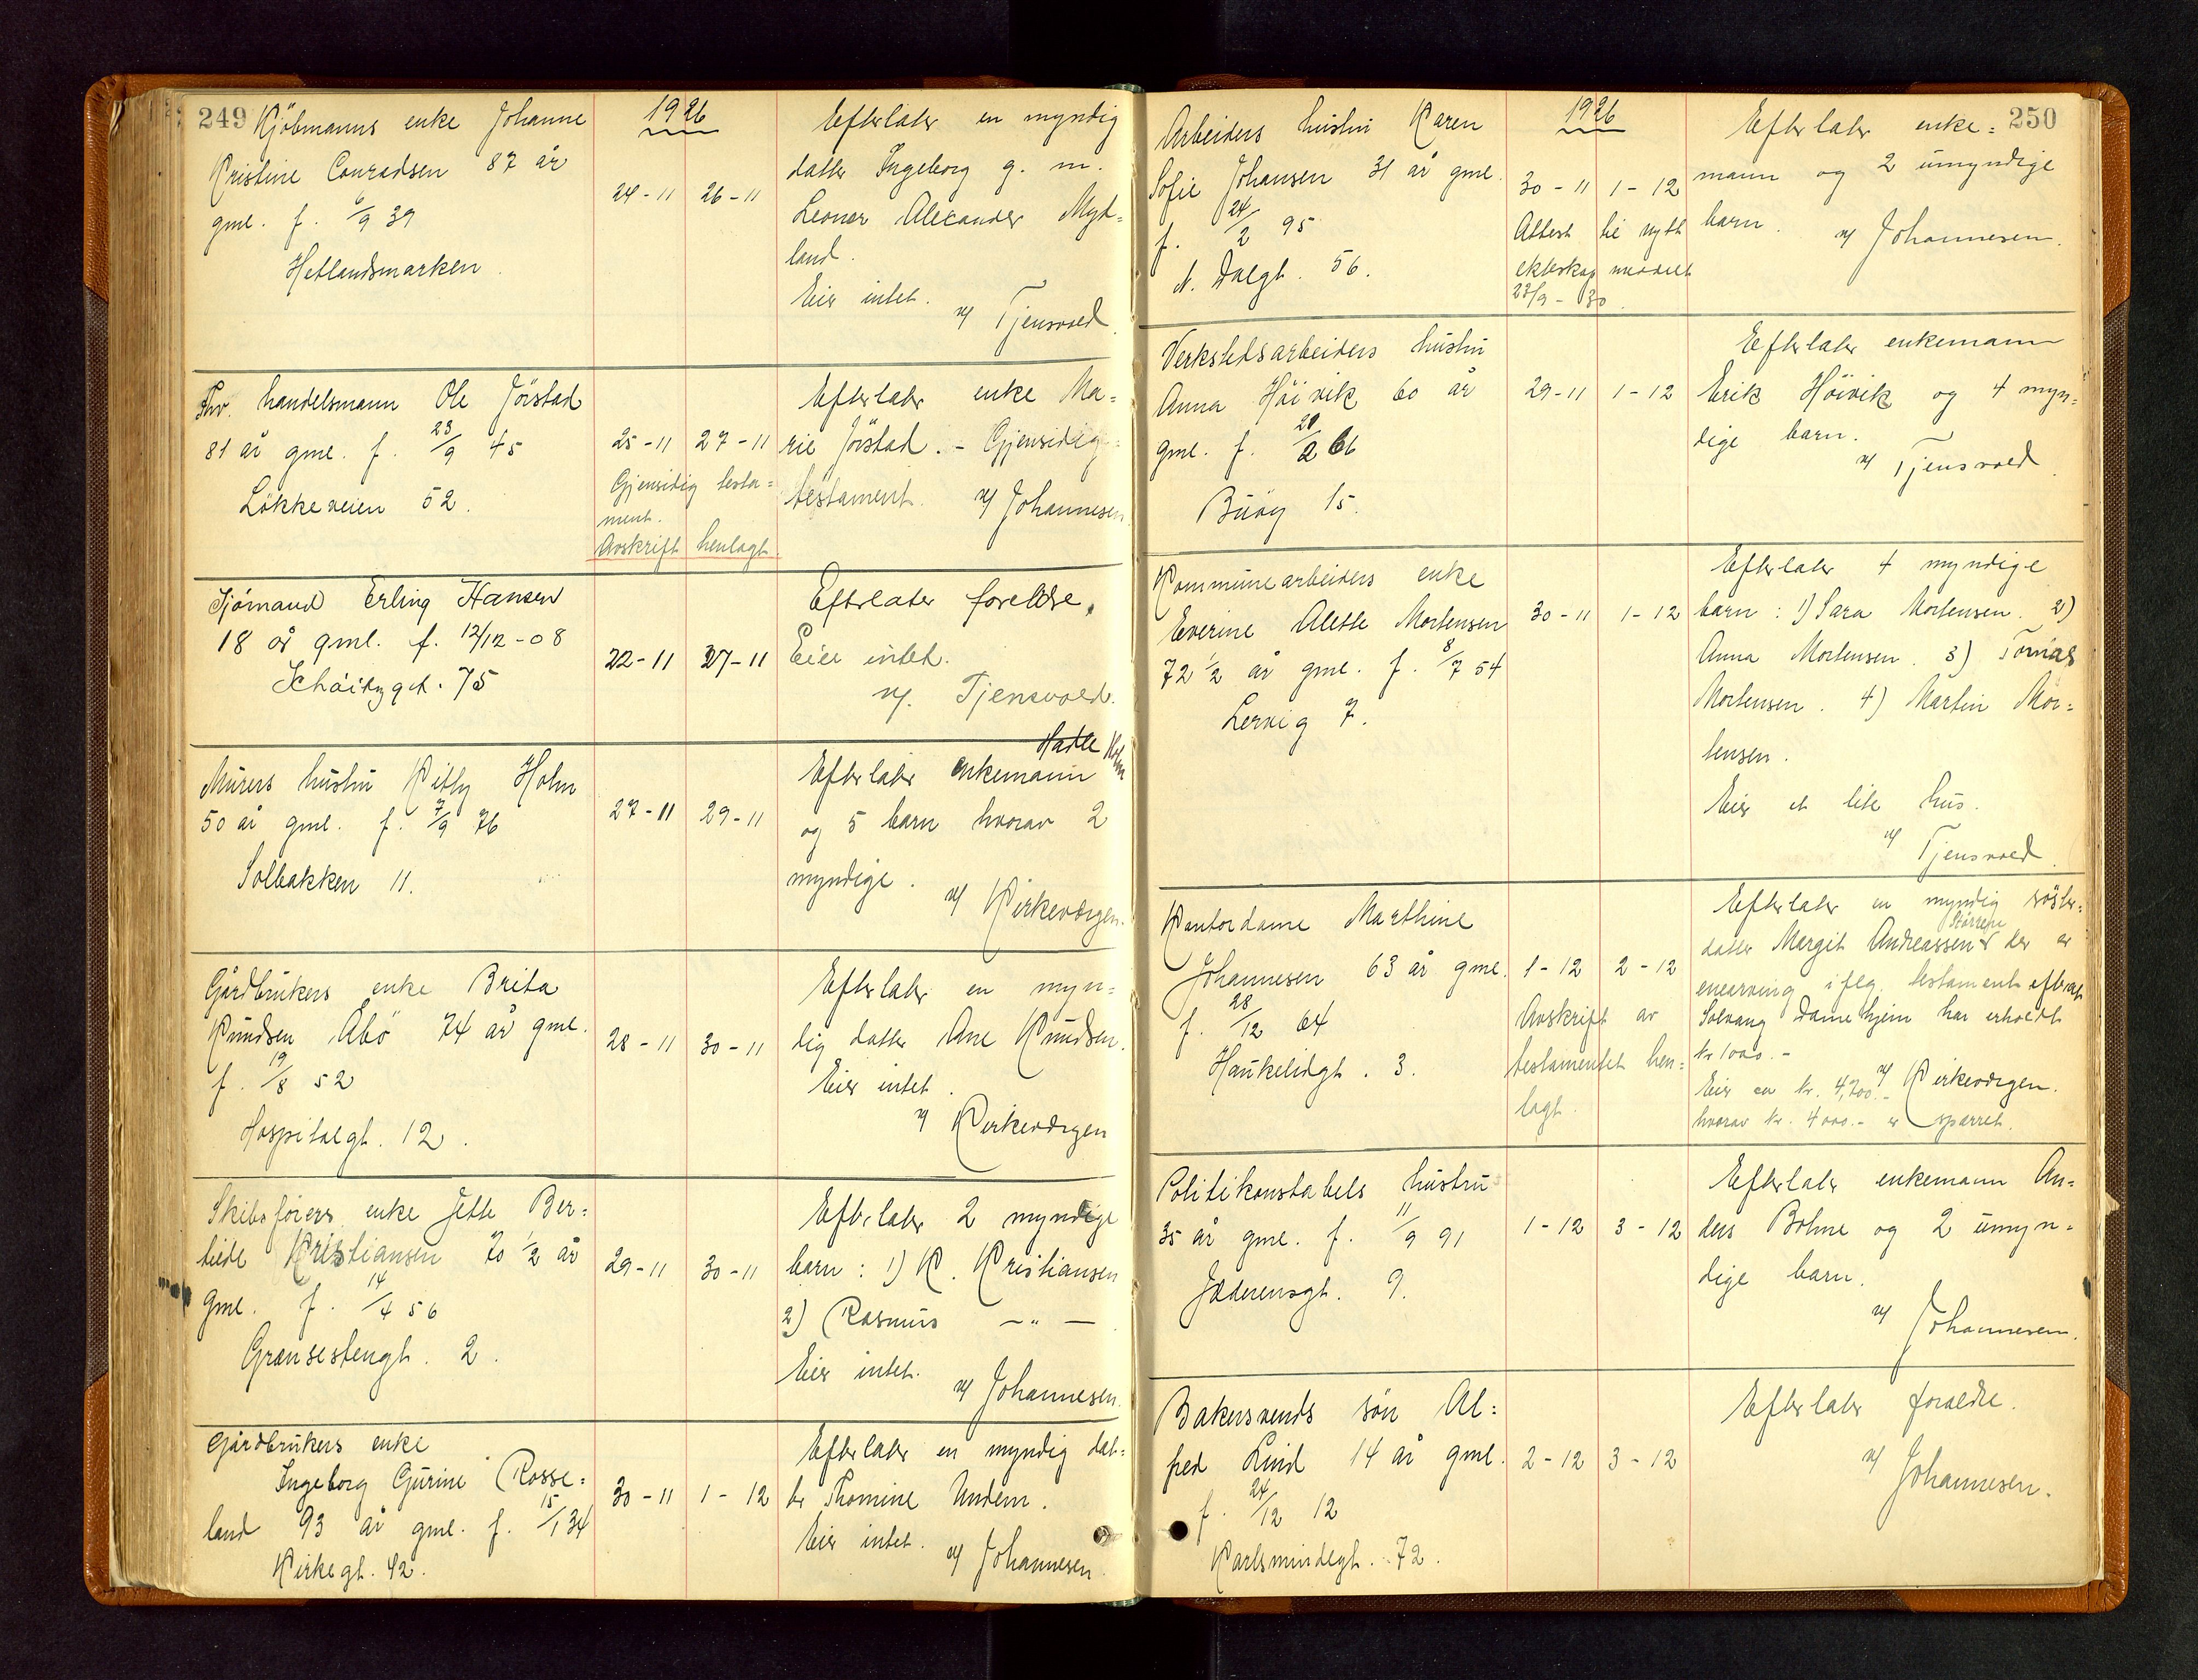 249
Kjöbmanns enke Johanne
Kristine Conradsen 87 år
gml. f. 6/9 39
Hetlandsmarken
1926
24-11 26-11
Efterlater en myndig
datter Ingeborg g. m.
Leonar Alexander Myd=
land.
Eier intet.
v/ Tjensvold.
Fhv. handelsmann Ole Jörstad
81 år gml. f. 23/9 45
Lökkeveien 52.
25-11 27-11
Gjensidig testa=
ment.
Avskrift henlagt.
Efterlater enke Ma=
rie Jörstad. - Gjensidig
testament. v/ Johannesen
Sjömand Erling Hansen
18 år gml. f. 12/12-08
Schöitzgt. 75
22-11 27-11
Efterlater forældre.
Eier intet.
v/. Tjensvold.
Murers hustru Kitty Holm
50 år gml. f. 7/9 76
Solbakken 11.
27-11 29-11
Hadle Holm
Efterlater enkemann
og 5 barn hvorav 2
myndige.
v/ Kirkeværgen.
Gårdbrukers enke Brita
Knudsen Åbö 74 år gml.
f. 19/8 52
Hospitalgt. 12.
28-11 30-11
Efterlater en myn=
dig datter Ane Knudsen.
Eier intet.
v/ Kirkeværgen
Skibsförers enke Jette Ber=
tilde Kristiansen 70 1/2 år
gml. f. 14/4 56
Grænsestengt. 2.
29-11 30-11
Efterlater 2 myndige
barn: 1) K. Kristiansen
2) Rasmus — " —
Eier intet.
v/ Johannesen.
Gårdbrukers enke
Ingeborg Gurine Rosse=
land 93 år gml. f. 15/1 34
Kirkegt. 42.
30-11 1-12
Efterlater en myndig dat=
ter Thomine Undem.
Eier intet.
v/ Johannesen.
250
Arbeiders hustru Karen
Sofie Johansen 31 år gml.
f. 24/2 95
N. Dalgt. 56.
1926
30-11 1-12
Attest til nytt
ekteskap meddelt
23/9-30.
Efterlater enke=
mann og 2 umyndige
barn.
v/ Johannesen.
Verkstedsarbeiders hustru
Anna Höivik 60 år
gml. f. 21/2 66
Buöy 15.
29-11 1-12
Efterlater enkemann
Erik Höivik og 4 myn=
dige barn.
v/ Tjensvold.
Kommunearbeiders enke
Everine Alette Mortensen
72 1/2 år gml. f. 8/7 54
Lervig 7.
30-11 1-12
Efterlater 4 myndige
barn: 1) Sara Mortensen. 2)
Anna Mortensen. 3) Tomas
Mortensen. 4) Martin Mor=
tensen.
Eier et lite hus.
v/ Tjensvold.
Kontordame Marthine
Johannesen 63 år gml.
f. 28/12 64
Haukelidgt. 3.
1-12 2-12
Avskrift av
testamentet hen=
lagt.
Efterlater en myndig söster=
datter Margit Andreassen der er
enearving iflg. testament efterat
Solvang Damehjem har erholdt
kr 1000.-
Eier ca kr. 4,700.-
v/ Kirkeværgen.
hvorav kr. 4000.- er sparret.
Politikonstabels hustru
35 år gml. f. 11/9 91
Jæderensgt. 9.
1-12 3-12
Efterlater enkemann An=
ders Bohne og 2 umyn=
dige barn.
v/ Johannesen.
Bakersvends sön Al=
fred Lind 14 år gml.
f. 24/12 12
Karlsmindegt. 72.
2-12 3-12
Efterlater forældre.
v/ Johannesen.